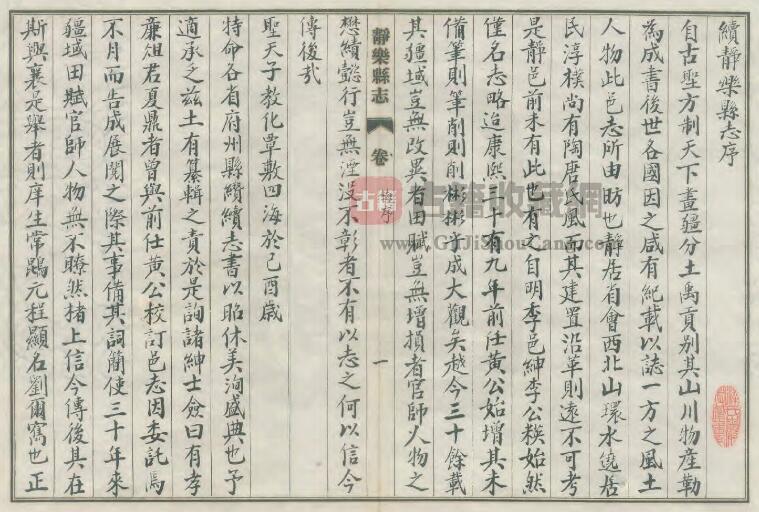 續靜樂縣志序
自古聖方制天下畫疆分土禹貢别其山川物産勒
為成書後世各國因之咸有紀載以誌一方之風土
人物此邑志所由昉也靜居省會西北山環水繞居
民淳樸尚有陶唐氏風而其建置沿革則遠不可考
是靜邑前未有此也有之自明季邑紳李公模始然
僅名志略迨康熙三十有九年前任黄公始增其未
備筆則筆削則削彬彬乎成大觀矣越今三十餘載
其疆域豈無改異者田賦豈無增損者官師人物之
靜樂縣志
卷
續序
一
懋績懿行豈無湮没不彰者不有以志之何以信今
傳後哉
聖天子教化覃敷四海於己酉歲
特命各省府州縣續纘志書以昭休美洵盛典也予
適承之兹土有纂輯之責於是詢諸紳士僉曰有孝
廉俎君夏鼎者曾與前任黄公校訂邑志因委託焉
不月而告成展閲之際其事備其詞簡使三十年來
疆域田賦官師人物無不瞭然楮上信今傳後其在
斯與襄是舉者則庠生常鵾元程顯名劉爾寓也正
古籍
古籍收藏網
www.GuJiShouCang.com